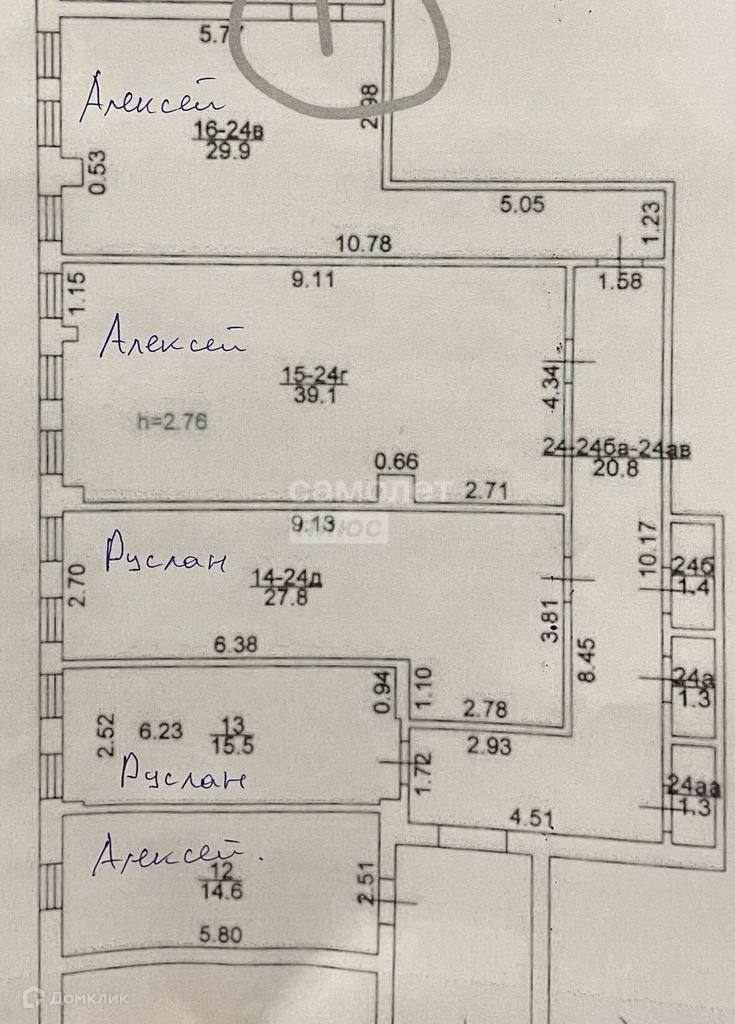 5.77
Алексей
2.98
16-24в
29.9
0.53
5.05
1.23
10.78
9.11
1.58
1.15
Алексей
15-24г
39.1
4.34
h=2.76
24-24бв-24ав
20.8
0.66
2.71
самолет
плюс
9.13
10.17
Руслан
14-24д
27.8
24б
1.4
2.70
3.81
6.38
8.45
24а
1.3
0.94
1.10
2.78
2.52
6.23
13
15.5
2.93
1.72
Руслан
24аа
1.3
4.51
Алексей.
12
14.6
2.51
5.80
Домклик